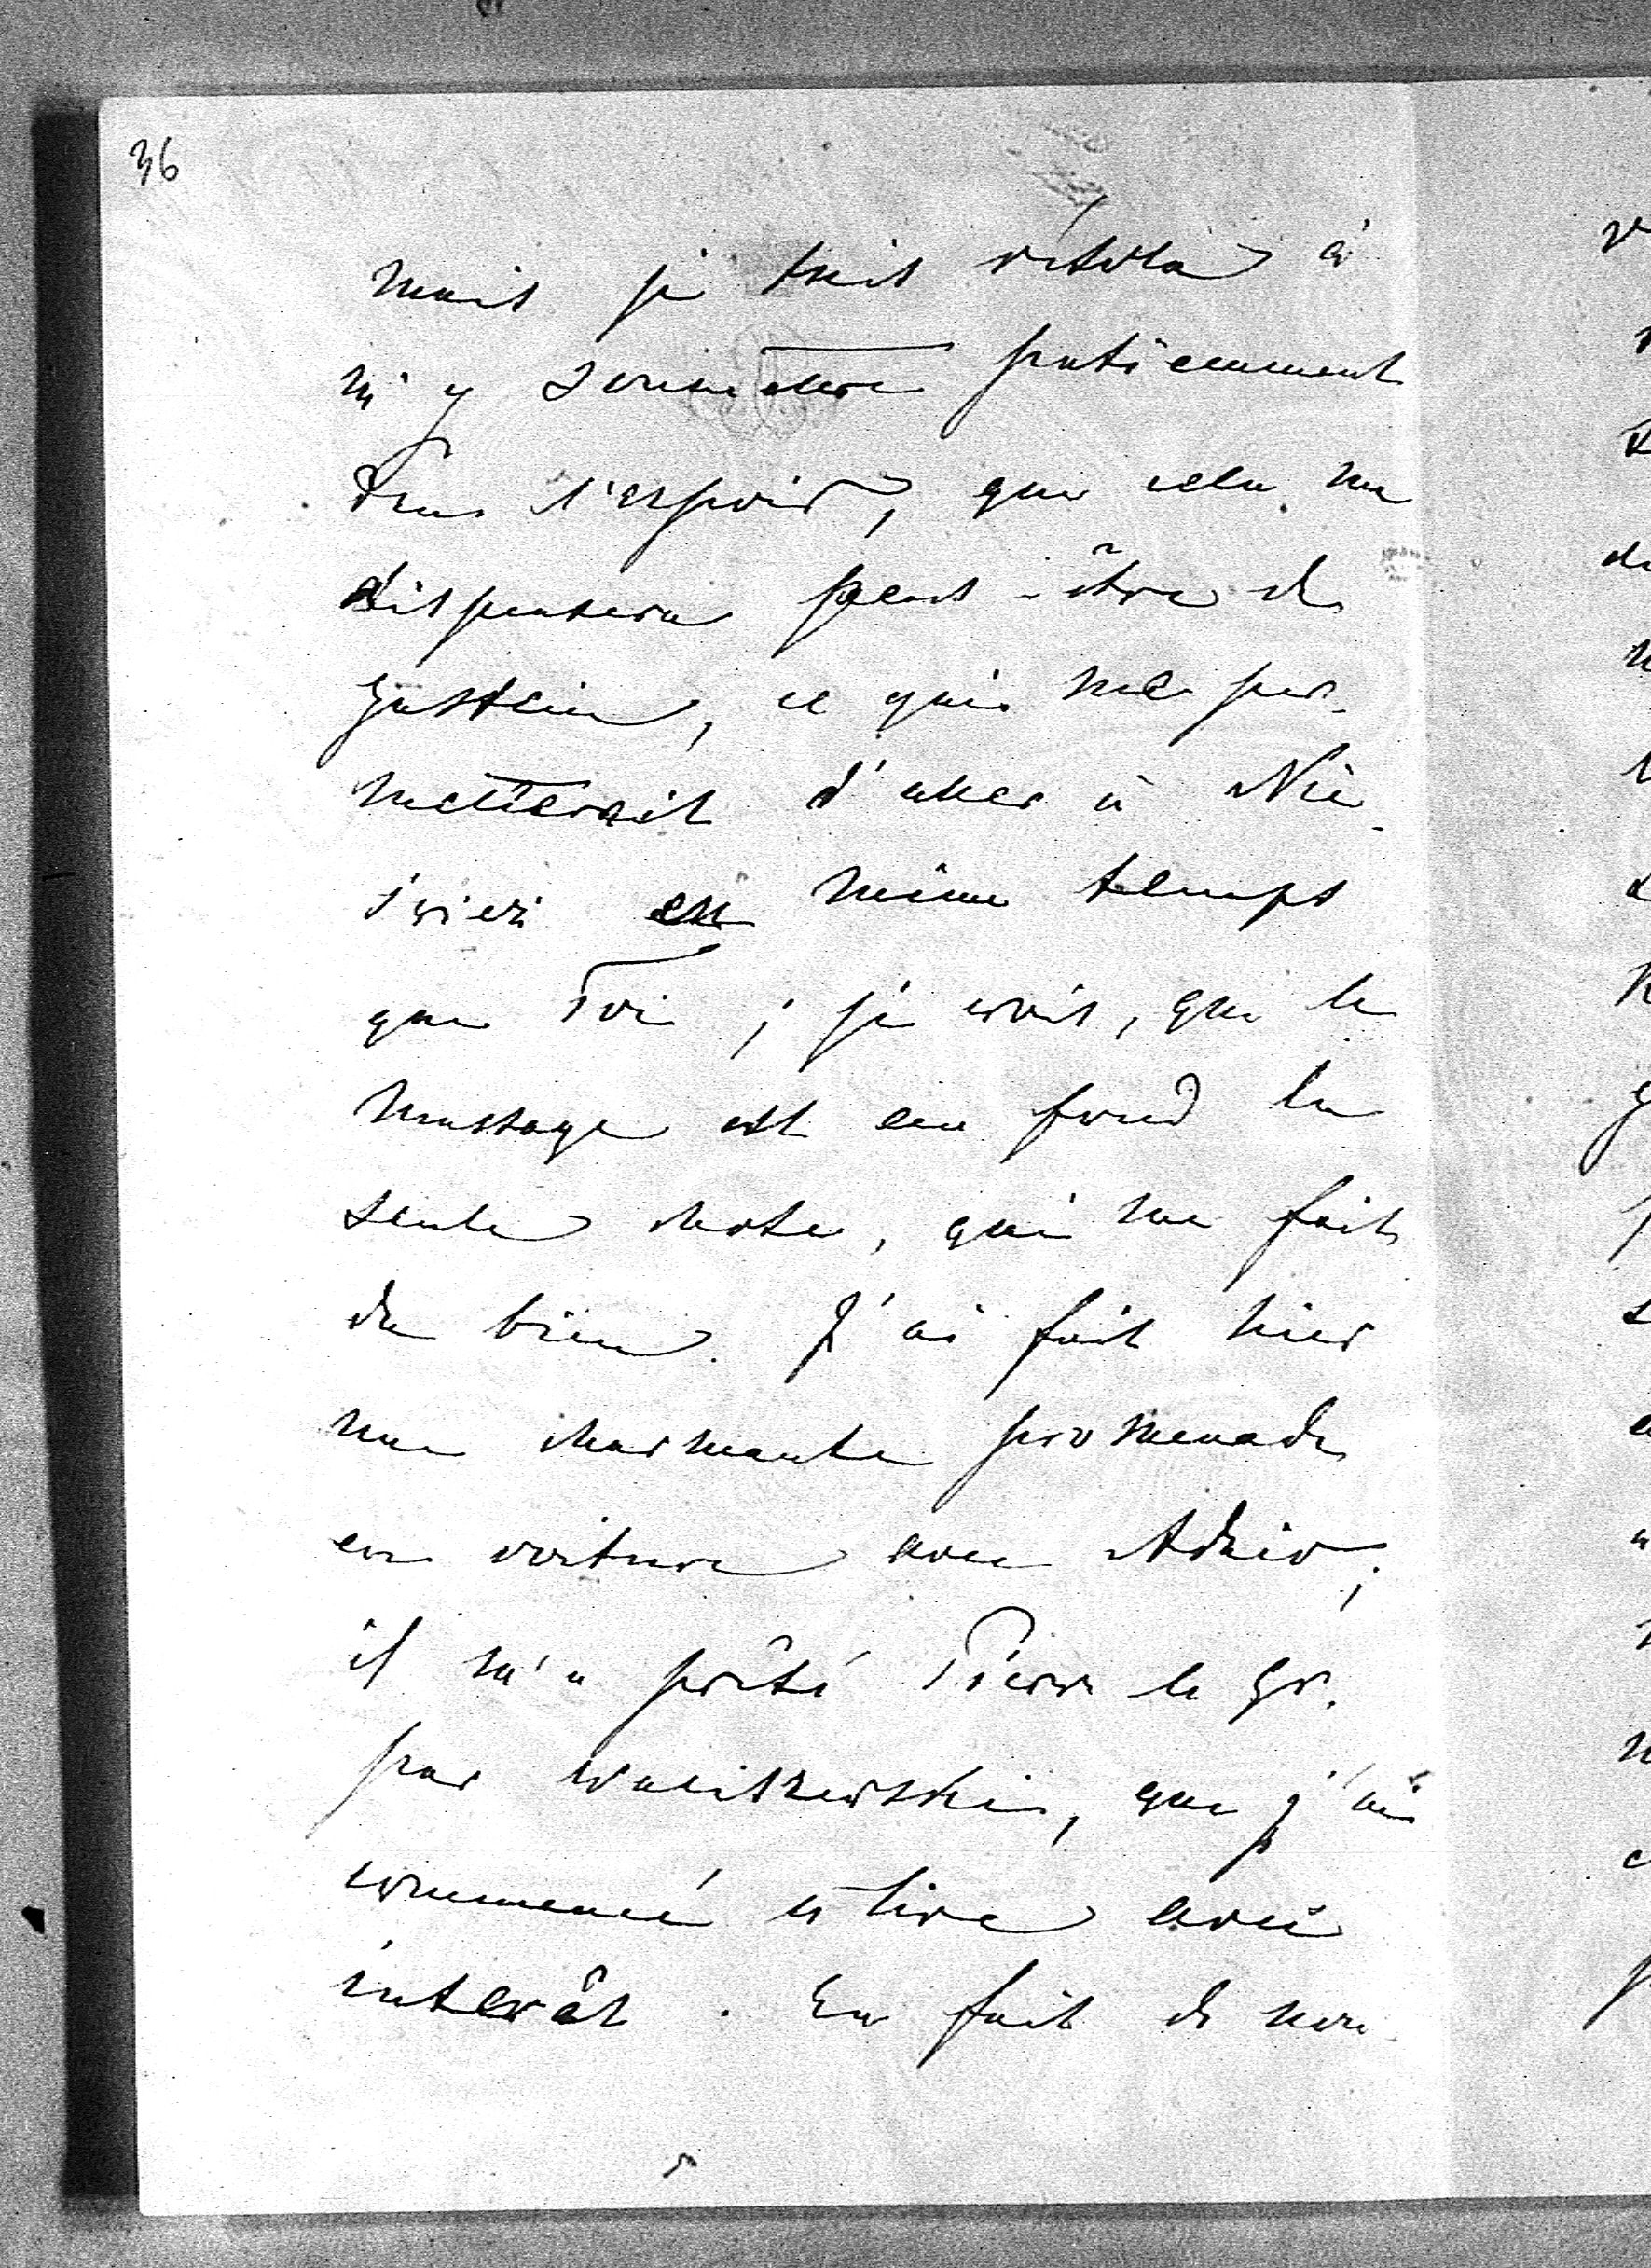 36
mais je suis résolu à
m'y soumettre patiemment
dans l'espoir, que cela me
dispensera peut-être de
Gastein, ce qui me per-
metterait d'aller à Nie-
świez en même temps
que Toi ; je crois, que le
massage est au fond la
seule chose, qui me fait
du bien. J'ai fait hier
une charmante promenade
en voiture avec Adzio;
il m'a prêté Pierre le Gr.
par Waliszewski, que j'ai
commencé à lire avec
interêt. En fait de nou